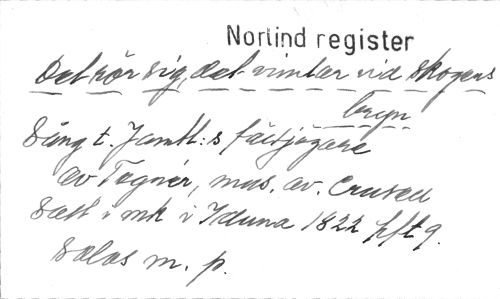 Norlind register
Det rör sig, det vimlar vid skogens
bryn
Sång t. Jamtl:s fältjägare
av Tegnér, mus. av. Crusell
Satt i mk i Iduna 1822 hft 9.
Solos m. p.